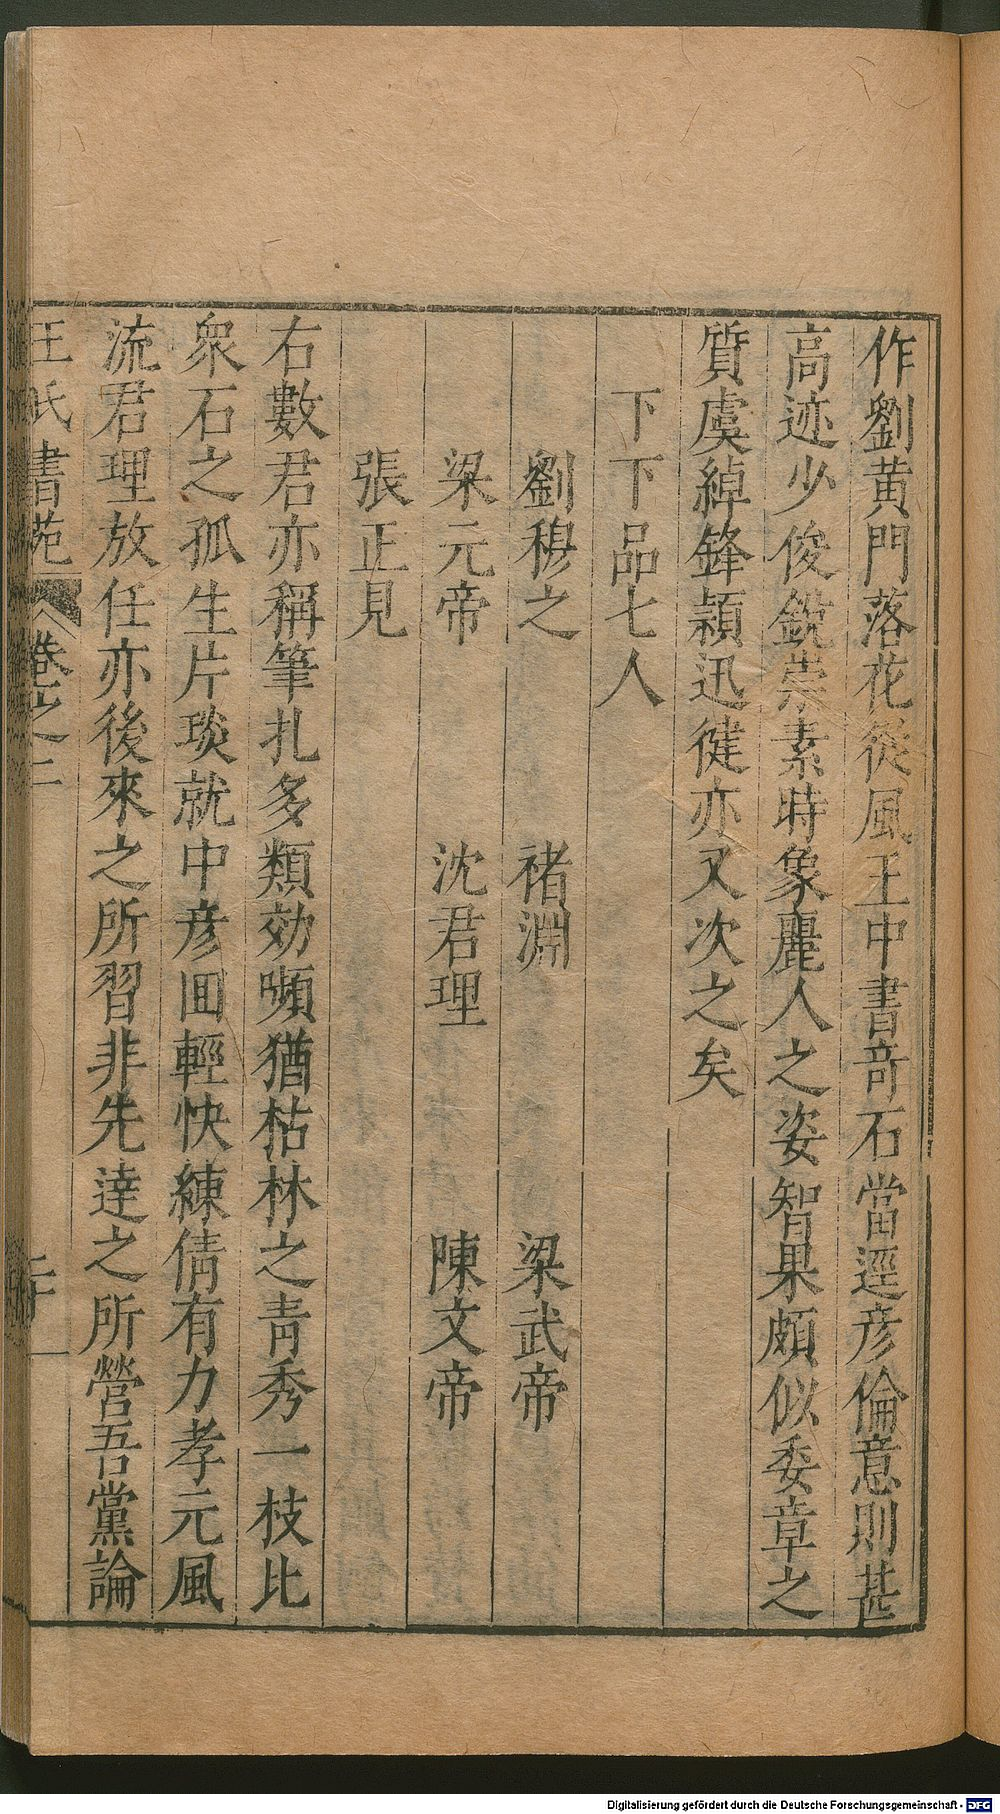 作劉黄門落花從風王中書竒石當逕彦倫意則甚
高迹少俊銳崇素時象麗人之姿智果頗似委章之
質虞綽鋒頴迅徤亦又次之矣
下下品七人
劉穆之 褚淵 梁武帝
梁元帝 沈君理 陳文帝
張正見
右數君亦稱筆扎多類効嚬猶枯林之靑秀一枝比
衆石之孤生片琰就中彦囬輕快練倩有力孝元風
流君理放任亦後來之所習非先達之所營吾黨論
王氏書苑 卷之二
Digitalisierung gefördert durch die Deutsche Forschungsgemeinschaft - DFG